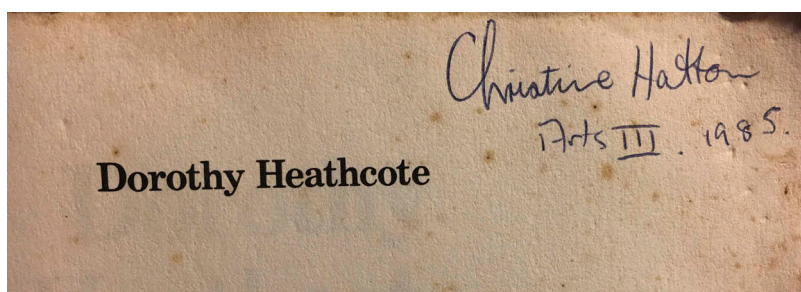 Christine Hatton
Arts III. 1985.
Dorothy Heathcote